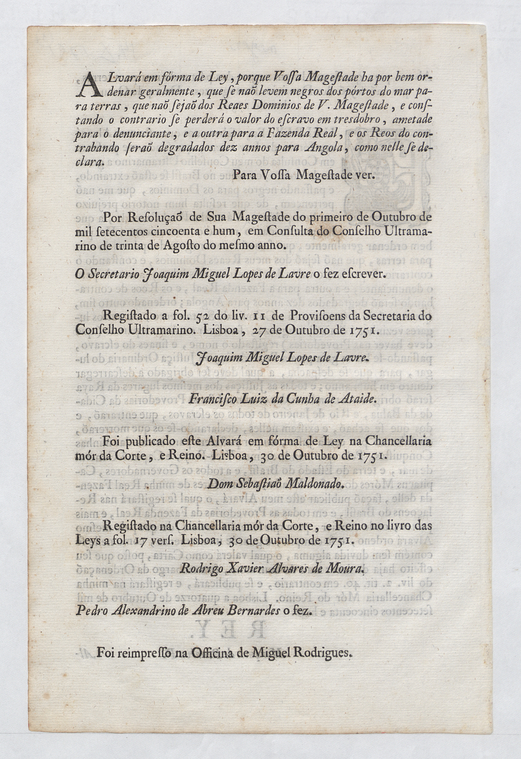 ALvará em fórma de Ley, porque Vossa Magestade ha por bem or-
denar geralmente, que se naõ levem negros dos pórtos do mar pa-
ra terras, que naõ sejaõ dos Reaes Dominios de V. Magestade, e cons-
tando o contrario se perderá o valor do escravo em tresdobro, ametade
para o denunciante, e a outra para a Fazenda Real, e os Reos do con-
trabando seraõ degradados dez annos para Angola, como nelle se de-
clara.
Para Vossa Magestade ver.
Por Resoluçaõ de Sua Magestade do primeiro de Outubro de
mil setecentos cincoenta e hum, em Consulta do Conselho Ultrama-
rino de trinta de Agosto do mesmo anno.
O Secretario Joaquim Miguel Lopes de Lavre o fez escrever.
Registado a fol. 52 do liv. 11 de Provisoens da Secretaria do
Conselho Ultramarino. Lisboa, 27 de Outubro de 1751.
Joaquim Miguel Lopes de Lavre.
Francisco Luiz da Cunha de Ataide.
Foi publicado este Alvará em fórma de Ley na Chancellaria
mór da Corte, e Reino. Lisboa, 30 de Outubro de 1751.
Dom Sebastiaõ Maldonado.
Registado na Chancellaria mór da Corte, e Reino no livro das
Leys a fol. 17 vers. Lisboa, 30 de Outubro de 1751.
Rodrigo Xavier Alvares de Moura.
Pedro Alexandrino de Abreu Bernardes o fez.
REY.
Foi reimpresso na Officina de Miguel Rodrigues.